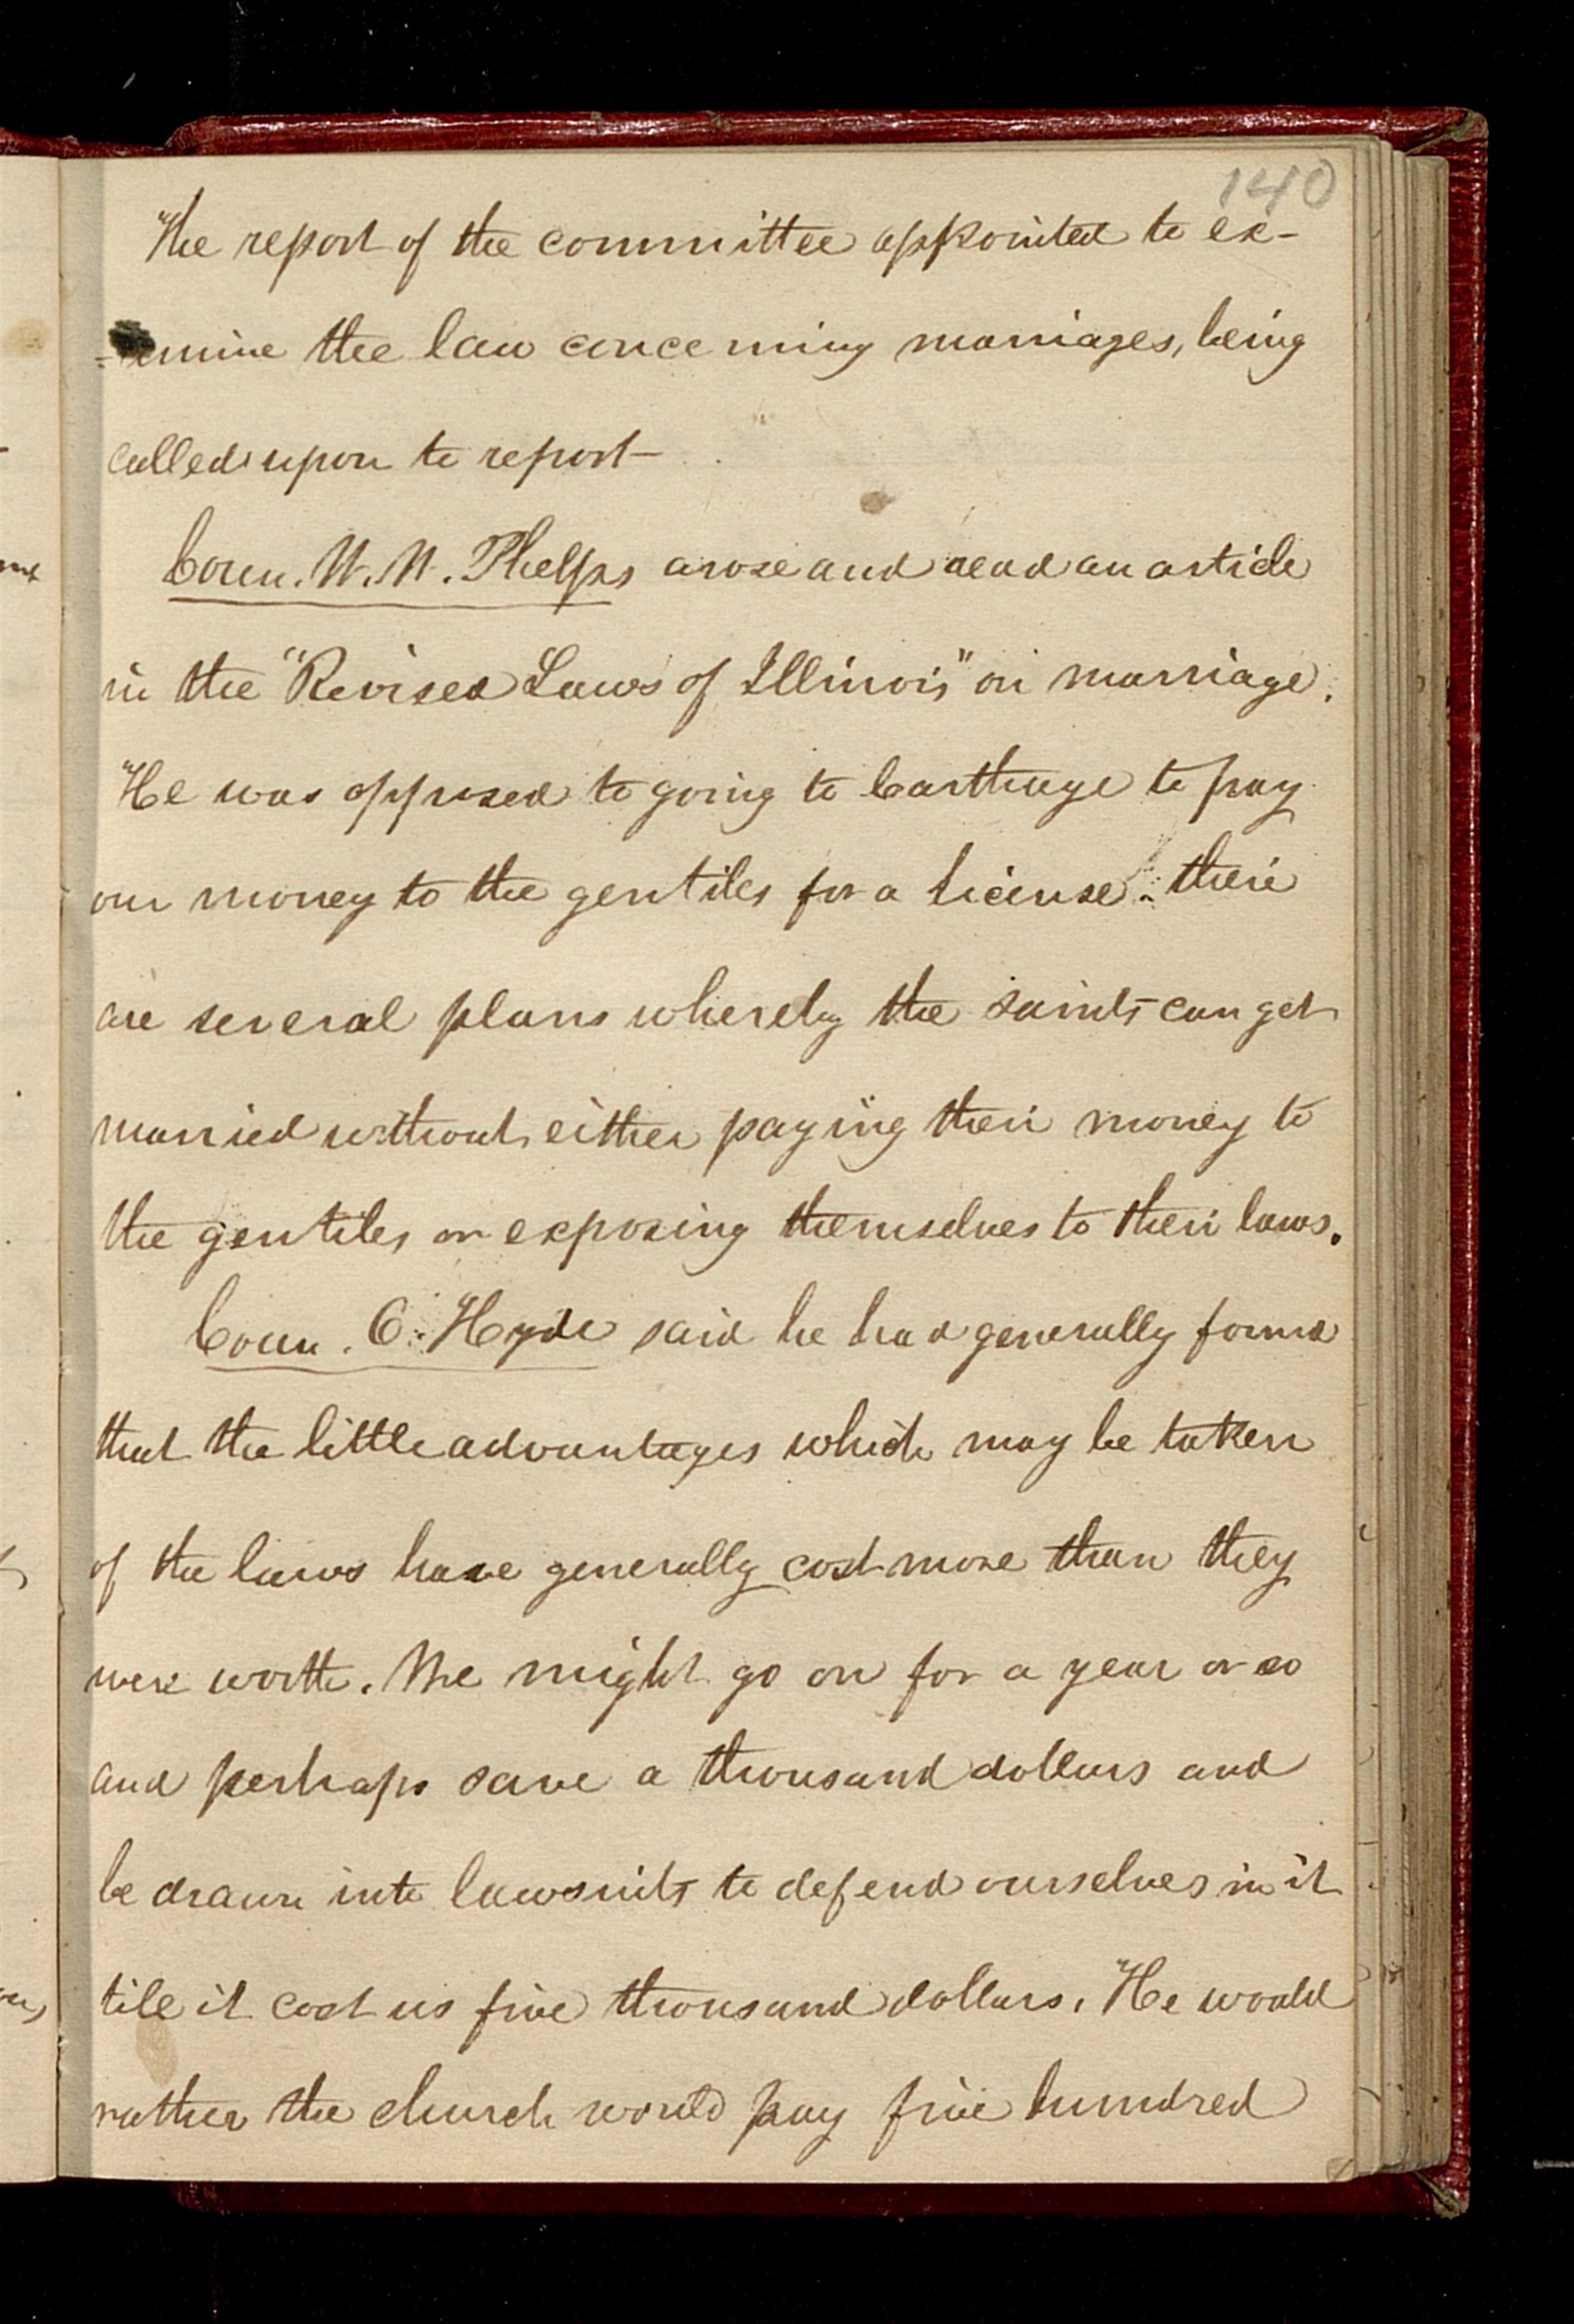 140
The report of the committee appointed to ex-
=amine the law concerning marriages, being
called upon to report—
Coun. W. W. Phelps arose and read an article
in the "Revised Laws of Illinois" on marriage.
He was opposed to going to Carthage to pay
our money to the gentiles for a license. there
are several plans whereby the saints can get
married without either paying their money to
the gentiles or exposing themselves to their laws.
Coun. O. Hyde said he had generally found
that the little advantages which may be taken
of the laws have generally cost more than they
were worth. We might go on for a year or so
and perhaps save a thousand dollars and
be drawn into lawsuits to defend ourselves in it
till it cost us five thousand dollars. He would
rather the church would pay five hundred